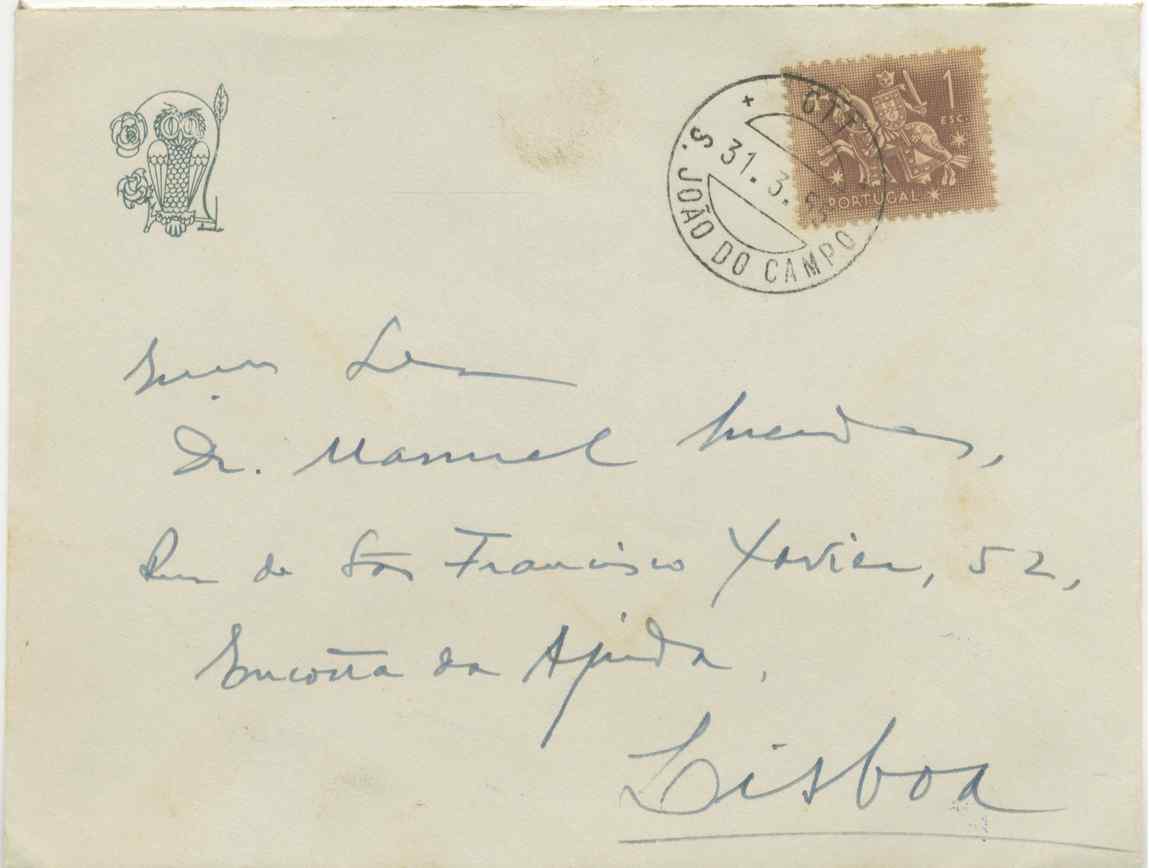 1
ESC.
PORTUGAL
CTT
31. 3.
S. JOÃO DO CAMPO
Dr. Manuel Mendes,
Rua de São Francisco Xavier, 52,
Encosta da Ajuda.
Lisboa